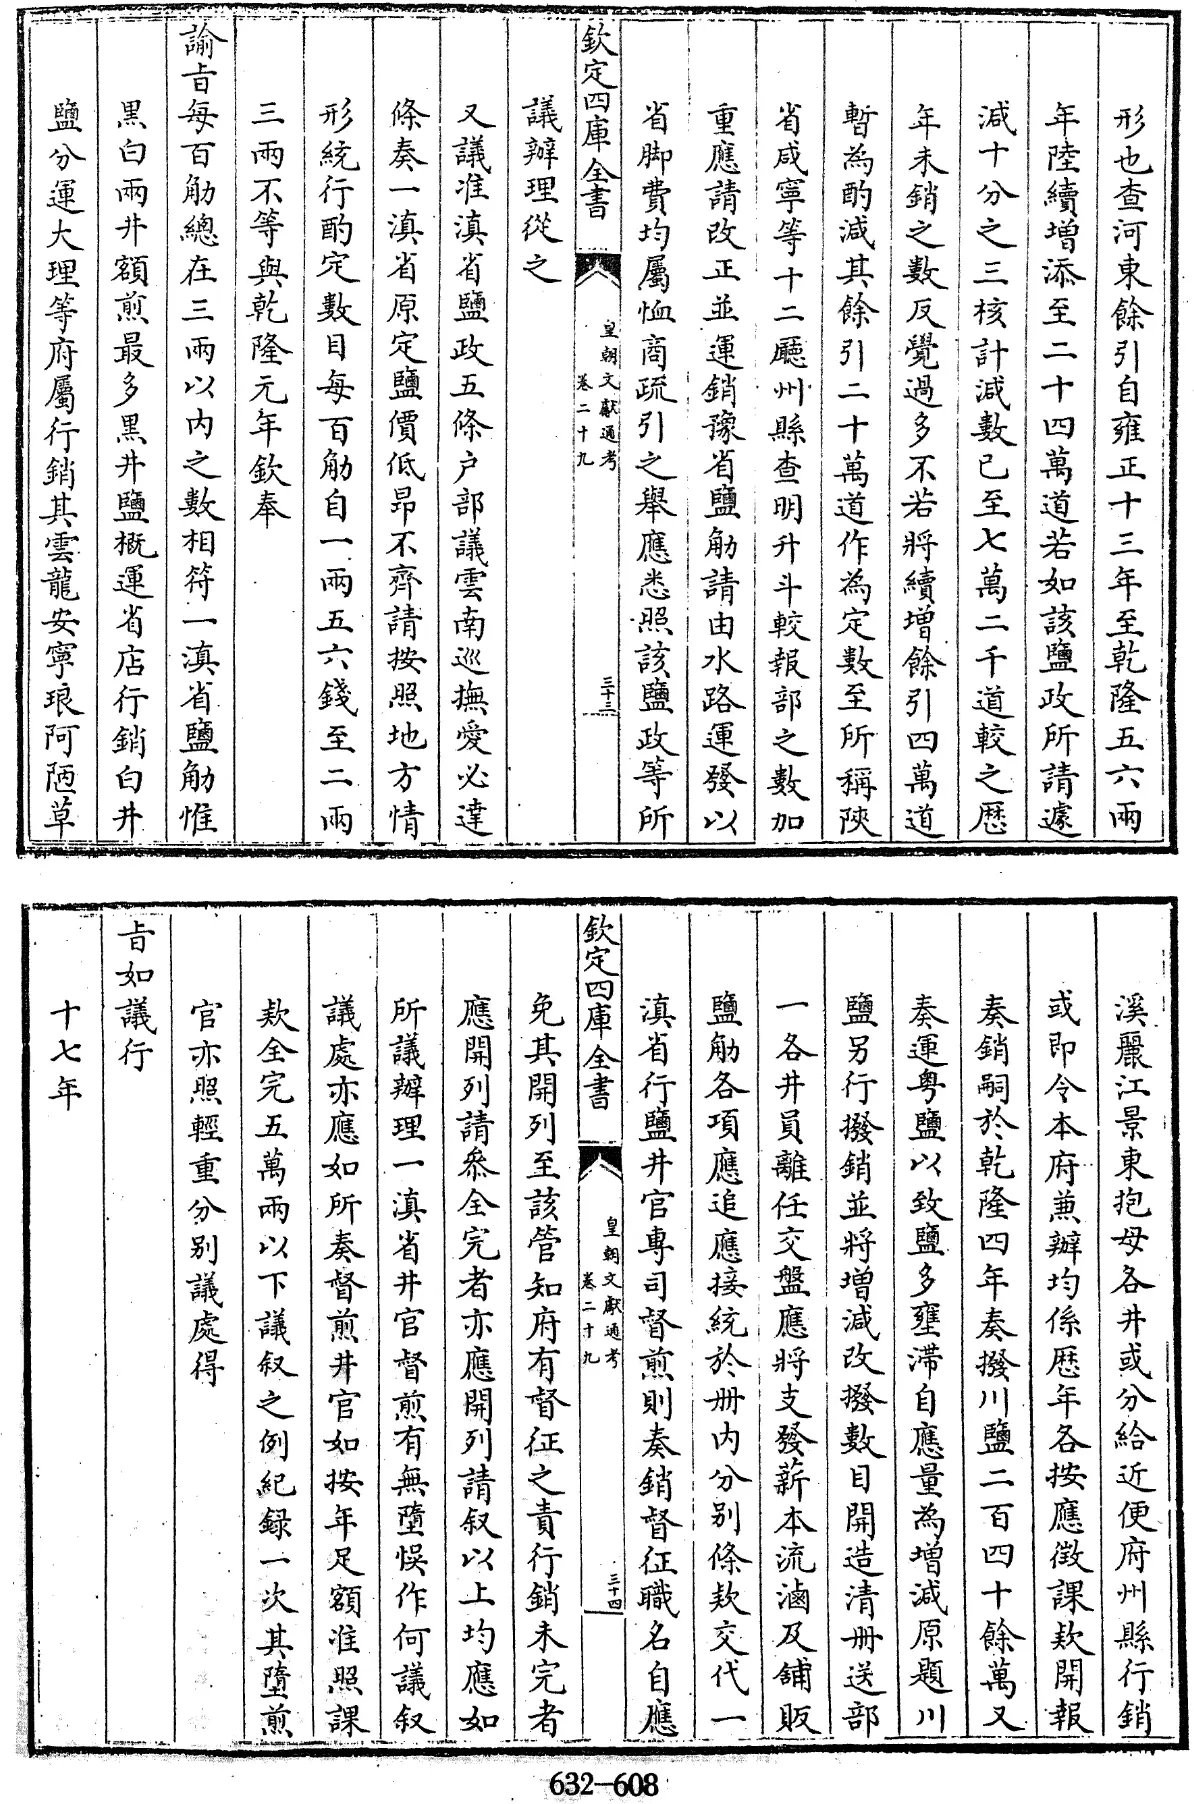 形也查河東餘引自雍正十三年至乾隆五六兩
年陸續増添至二十四萬道若如該鹽政所請遽
減十分之三核計減數已至七萬二千道較之歴
年未銷之數反覺過多不若將續増餘引四萬道
暫為酌減其餘引二十萬道作為定數至所稱陜
省咸寧等十二廳州縣查明升斗較報部之數加
重應請改正並運銷豫省鹽觔請由水路運發以
省脚費均屬恤商疏引之舉應悉照該鹽政等所
欽定四庫全書
皇朝文獻通考
卷二十九
三十三
議辦理從之
又議准滇省鹽政五條户部議雲南巡撫愛必達
條奏一滇省原定鹽價低昂不齊請按照地方情
形統行酌定數目每百觔自一兩五六錢至二兩
三兩不等與乾隆元年欽奉
諭㫖每百觔總在三兩以内之數相符一滇省鹽觔惟
黒白兩井額煎最多黒井鹽概運省店行銷白井
鹽分運大理等府屬行銷其雲龍安寧琅阿陋草
溪麗江景東抱母各井或分給近便府州縣行銷
或即令本府兼辦均係歴年各按應徴課款開報
奏銷嗣於乾隆四年奏撥川鹽二百四十餘萬又
奏運粤鹽以致鹽多壅滯自應量為増減原題川
鹽另行撥銷並將増減改撥數目開造清冊送部
一各井員離任交盤應將支發薪本流滷及舖販
鹽觔各項應追應接統於冊内分别條款交代一
滇省行鹽井官專司督煎則奏銷督征職名自應
欽定四庫全書
皇朝文獻通考
卷二十九
三十四
免其開列至該管知府有督征之責行銷未完者
應開列請叅全完者亦應開列請叙以上均應如
所議辦理一滇省井官督煎有無墮悞作何議叙
議處亦應如所奏督煎井官如按年足額准照課
款全完五萬兩以下議叙之例紀録一次其墮煎
官亦照輕重分别議處得
㫖如議行
十七年
632-608